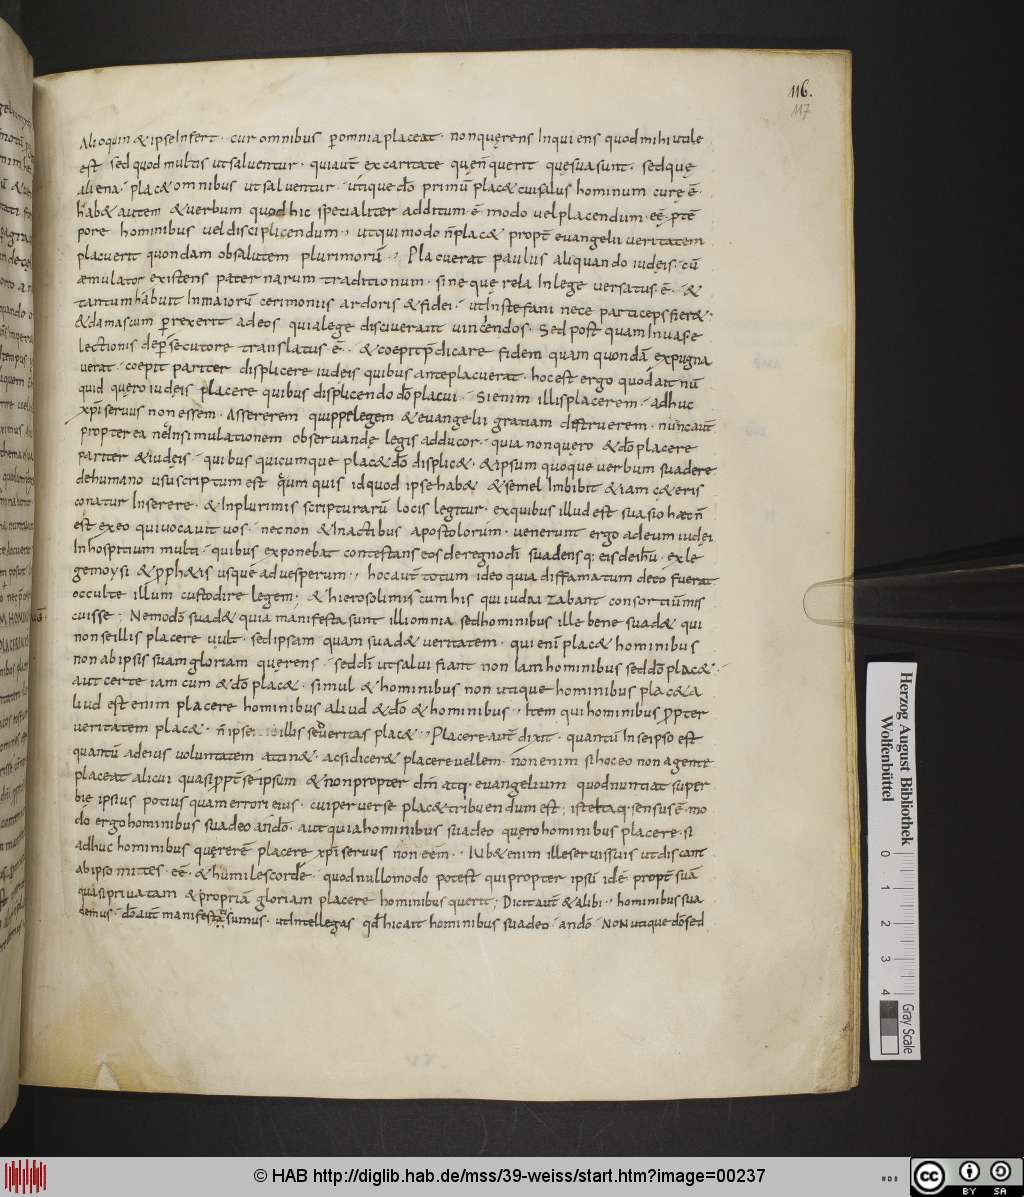 116.
117
Alioquin & ipse Infert · cur omnibus p omnia placeat · non quęrens Inquiens quod mihi utile
est sed quod multis ut salventur · quia ut ex caritate quęrit quę sua sunt · sed quę
aliena · plac& omnibus ut salventur · utique dō primū plac& cui salus hominum curę ē ·
hab& autem & verbum quod hic specialiter additum ē modo vel placendum eē ptē
pore hominibus vel disciplicendum · ut qui modo n̄ plac& propt̄ evangelii veritatem
placuerit quondam ob salutem plurimorū · Placuerat paulus aliquando iudęis · cū
æmulator existens paternarum traditionum · sine querela In lege versatus ē · &
tantum habuit In maiorū cerimoniis ardoris & fidei · ut In stefani nece particeps fier& ·
& damascum perrexerit ad eos qui a lege disciverant vinciendos · Sed postquam In vas e
lectionis de persecutore translatus ē · & coepit p̄dicare fidem quam quondā expugna
verat · coepit pariter displicere iudęis quibus ante placuerat · hoc est ergo quod ait nū
quid quęro iudęis placere quibus displicendo dō placui · Si enim illis placerem · adhuc
xpī servus non essem · Assererem quippe legem & evangelii gratiam destruerem · nunc aut̄
propterea nec In simulationem observandę legis adducor · quia non quęro & dō placere
pariter & iudęis · quibus quicumque plac& dō displic& · & ipsum quoque verbum suadere
de humano usu scriptum est cum quis id quod ipse hab& & semel Imbibit & iam c&eris
conatur Inserere · & In plurimis scripturarū locis legitur · ex quibus illud est suasio hæc n̄
est ex eo qui vocavit vos · necnon & In actibus apostolorum · venerunt ergo ad eum iudęi
In hospitium multi · quibus exponebat contestans eos de regno dī suadensq: eis de ihū · ex le
ge moysi & pph&is usque ad vesperum · hoc aut̄ totum ideo quia diffamatum de eo fuerat
occulte illum custodire legem · & hierosolimis cum his qui iudaizabant consortium mis
cuisse · Nemo dō suad& quia manifesta sunt illi omnia sed hominibus ille bene suad& qui
non se illis placere vult · sed ipsam quam suad& veritatem · qui enī plac& hominibus
non ab ipsis suam gloriam quęrens · sed dī ut salvi fiant non iam hominibus sed dō plac& ·
aut certe iam cum & dō plac& · simul & hominibus non utique hominibus plac& a
liud est enim placere hominibus aliud & dō & hominibus · Item qui hominibus ppter
veritatem plac& · n̄ ipse illis sed veritas plac& · Placere aut̄ dixit · quantū In se ipso est
quantū ad eius voluntatem attin& · ac si dicer& placere vellem · non enim si hoc eo non agente
placeat alicui quasi ppt̄ se ipsum & non propter dm̄ atq · evangelium quod nuntiat super
bie ipsius potius quam errori eius · cui perverse plac& tribuendum est · iste itaq · sensus ē · mo
do ergo hominibus suadeo an dō · aut quia hominibus suadeo quęro hominibus placere · si
adhuc hominibus quęrerē placere xpī servus non eēm · Iub& enim ille servis suis ut discant
ab ipso mittes eē · & humiles corde · quod nullo modo potest qui propter ipsū idē propt̄ suā
quasi privatam & propriā gloriam placere hominibus querit · Dicit aut̄ & alibi · hominibus sua
demus · dō aut̄ manifesta sumus · ut Intellegas qd hic ait hominibus suadeo · an dō · Non utique dō sed
Herzog August Bibliothek
Wolfenbüttel
0 1 2 3 4
Gray Scale
© HAB http://diglib.hab.de/mss/39-weiss/start.htm?image=00237
cc BY SA